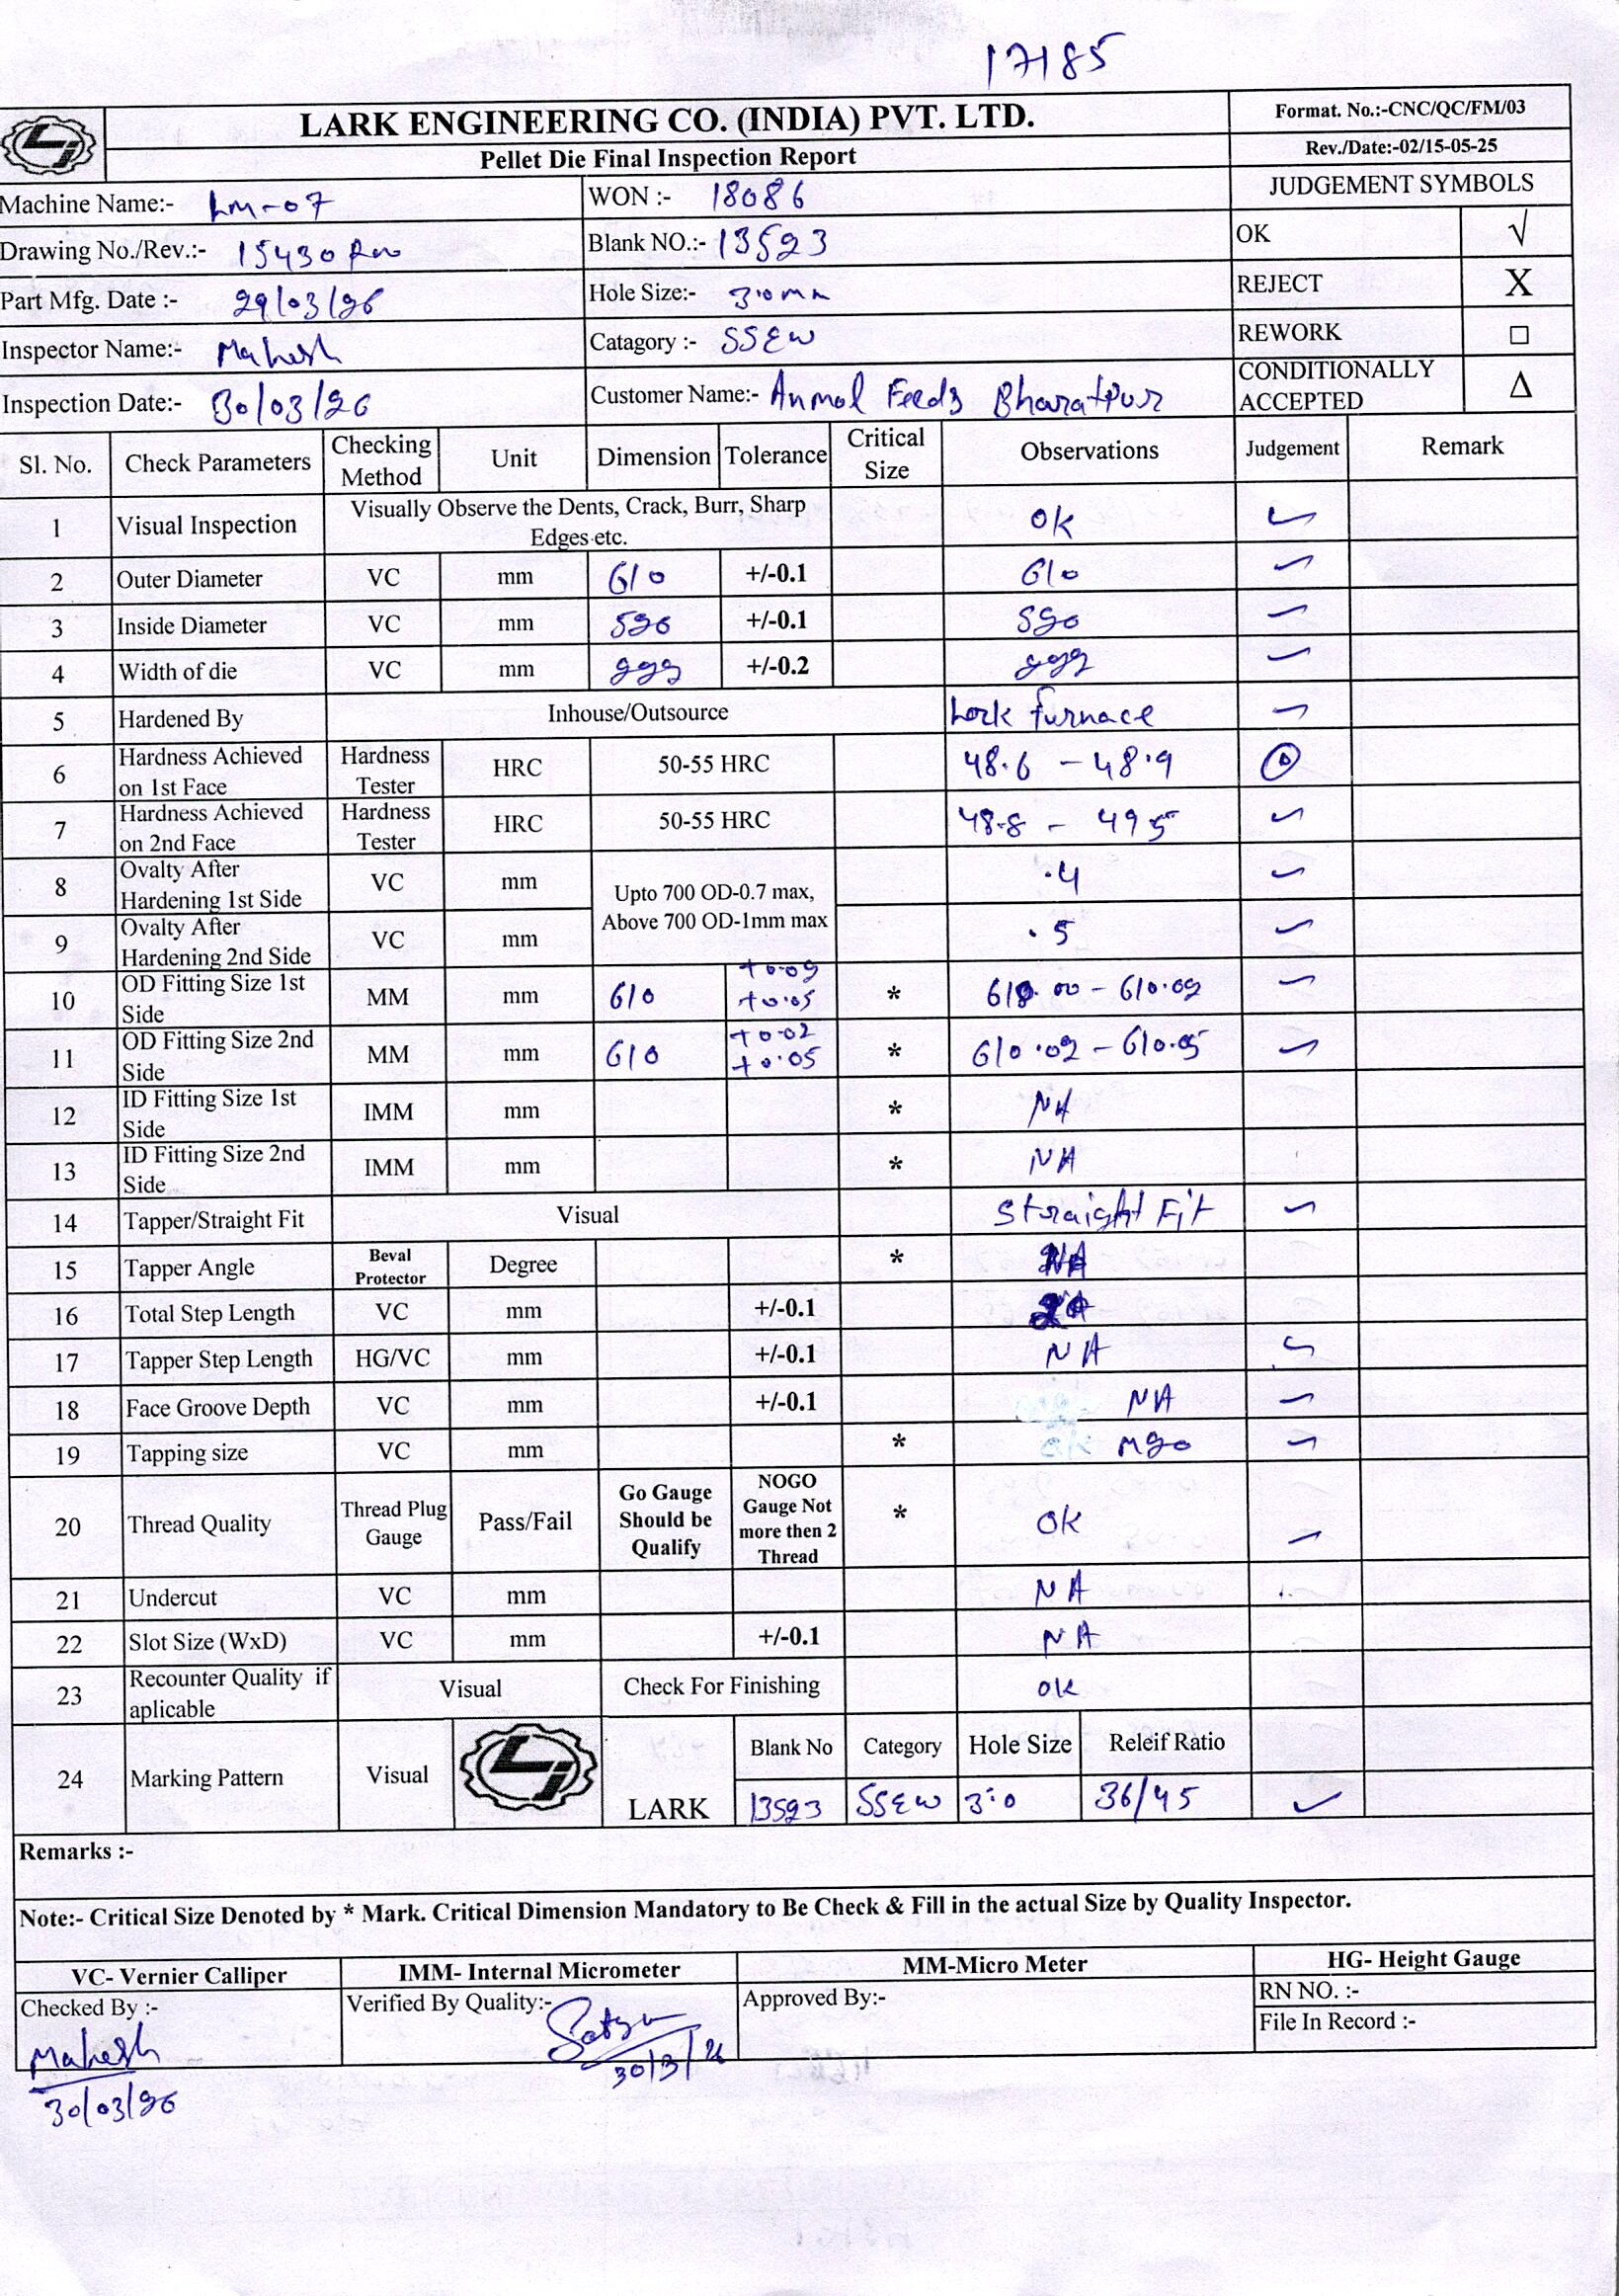 17185
LARK ENGINEERING CO. (INDIA) PVT. LTD.
Format. No.:-CNC/QC/FM/03
Pellet Die Final Inspection Report
Rev./Date:-02/15-05-25
Machine Name:- LM-07 WON :- 18086 JUDGEMENT SYMBOLS
Drawing No./Rev.:- 15430 Blank NO.:- 13523 OK √
Part Mfg. Date :- 29/03/26 Hole Size:- 3.0mm REJECT X
Inspector Name:- Mahesh Catagory :- SSEW REWORK □
Inspection Date:- 30/03/26 Customer Name:- Anmol Feeds Bharatpur CONDITIONALLY ACCEPTED Δ
Sl. No. Check Parameters Checking Method Unit Dimension Tolerance Critical Size Observations Judgement Remark
1 Visual Inspection Visually Observe the Dents, Crack, Burr, Sharp Edges etc. OK ✓
2 Outer Diameter VC mm 610 +/-0.1 610 ✓
3 Inside Diameter VC mm 520 +/-0.1 520 ✓
4 Width of die VC mm +/-0.2 ✓
5 Hardened By Inhouse/Outsource Lark furnace ✓
6 Hardness Achieved on 1st Face Hardness Tester HRC 50-55 HRC 48.6 - 48.9
7 Hardness Achieved on 2nd Face Hardness Tester HRC 50-55 HRC 48.8 - 49 5 ✓
8 Ovalty After Hardening 1st Side VC mm Upto 700 OD-0.7 max, Above 700 OD-1mm max .4 ✓
9 Ovalty After Hardening 2nd Side VC mm .5 ✓
10 OD Fitting Size 1st Side MM mm 610 +0.02 +0.05 * 610.00 - 610.02 ✓
11 OD Fitting Size 2nd Side MM mm 610 +0.02 +0.05 * 610.02 - 610.05 ✓
12 ID Fitting Size 1st Side IMM mm * NA
13 ID Fitting Size 2nd Side IMM mm * NA
14 Tapper/Straight Fit Visual Straight Fit ✓
15 Tapper Angle Beval Protector Degree * NA
16 Total Step Length VC mm +/-0.1
17 Tapper Step Length HG/VC mm +/-0.1 NA ✓
18 Face Groove Depth VC mm +/-0.1 NA ✓
19 Tapping size VC mm * M20 ✓
20 Thread Quality Thread Plug Gauge Pass/Fail Go Gauge Should be Qualify NOGO Gauge Not more then 2 Thread * OK ✓
21 Undercut VC mm NA
22 Slot Size (WxD) VC mm +/-0.1 NA
23 Recounter Quality if aplicable Visual Check For Finishing OK
24 Marking Pattern Visual LARK Blank No Category Hole Size Releif Ratio
13523 SSEW 3.0 36/45 ✓
Remarks :-
Note:- Critical Size Denoted by * Mark. Critical Dimension Mandatory to Be Check & Fill in the actual Size by Quality Inspector.
VC- Vernier Calliper IMM- Internal Micrometer MM-Micro Meter HG- Height Gauge
Checked By :- Verified By Quality:- Approved By:- RN NO. :-
File In Record :-
Mahesh
30/03/26
30/3/26